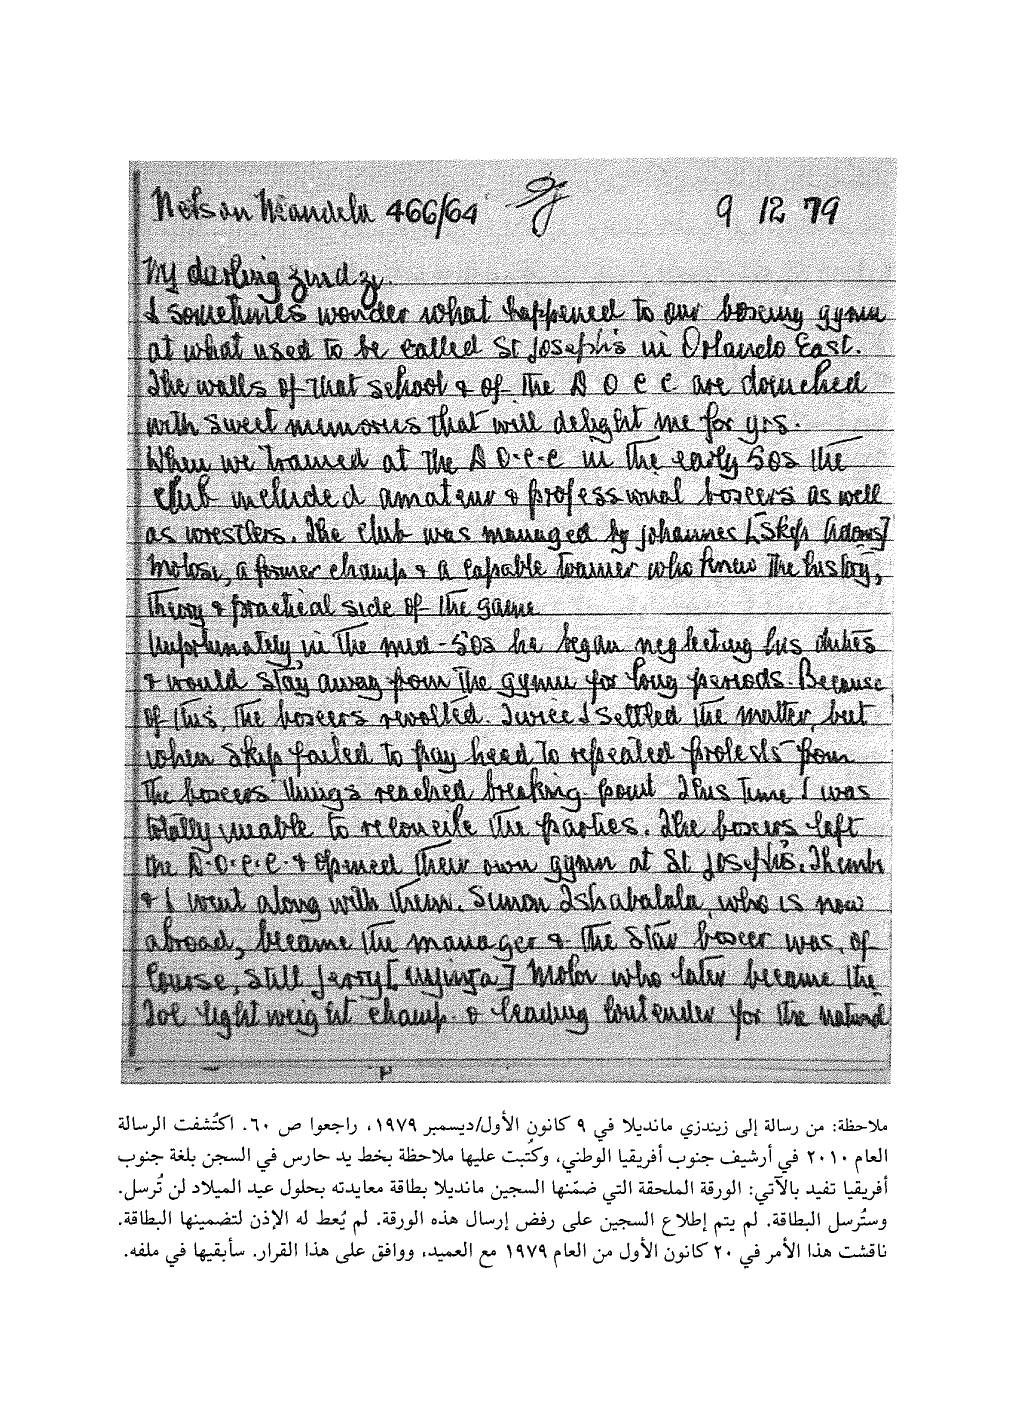 Nelson Mandela 466/64
9 12 79
My darling Zindzi.
I sometimes wonder what happened to our boxing gymn
at what used to be called St Joseph's in Orlando East.
The walls of that school & of the D O C C are drenched
with sweet memories that will delight me for yrs.
When we trained at the D.O.C.C in the early 50s the
club included amateur & professional boxers as well
as wrestlers. The club was managed by Johannes [Skip Adams]
Molosi, a former champ & a capable trainer who knew the history,
theory & practical side of the game
Unfortunately, in the mid-50s he began neglecting his duties
& would stay away from the gymn for long periods. Because
of this, the boxers revolted. Twice I settled the matter, but
when Skip failed to pay head to repeated protests from
the boxers things reached breaking-point This time I was
totally unable to reconcile the parties. The boxers left
the D.O.C.C. & opened their own gymn at St Joseph's. Thembi
& I went along with them. Simon Tshabalala, who is now
abroad, became the manager & the star boxer was, of
course, still Jerry [Uyinja] Moloi who later became the
Tvl lightweight champ & leading contender for the national
ملاحظة: من رسالة إلى زيندزي مانديلا في ٩ كانون الأول/ديسمبر ١٩٧٩، راجعوا ص ٦٠. اكتُشفت الرسالة
العام ٢٠١٠ في أرشيف جنوب أفريقيا الوطني، وكُتبت عليها ملاحظة بخط يد حارس في السجن بلغة جنوب
أفريقيا تفيد بالآتي: الورقة الملحقة التي ضمّنها السجين مانديلا بطاقة معايدته بحلول عيد الميلاد لن تُرسل.
وستُرسل البطاقة. لم يتم إطلاع السجين على رفض إرسال هذه الورقة. لم يُعط له الإذن لتضمينها البطاقة.
ناقشت هذا الأمر في ٢٠ كانون الأول من العام ١٩٧٩ مع العميد، ووافق على هذا القرار. سأبقيها في ملفه.